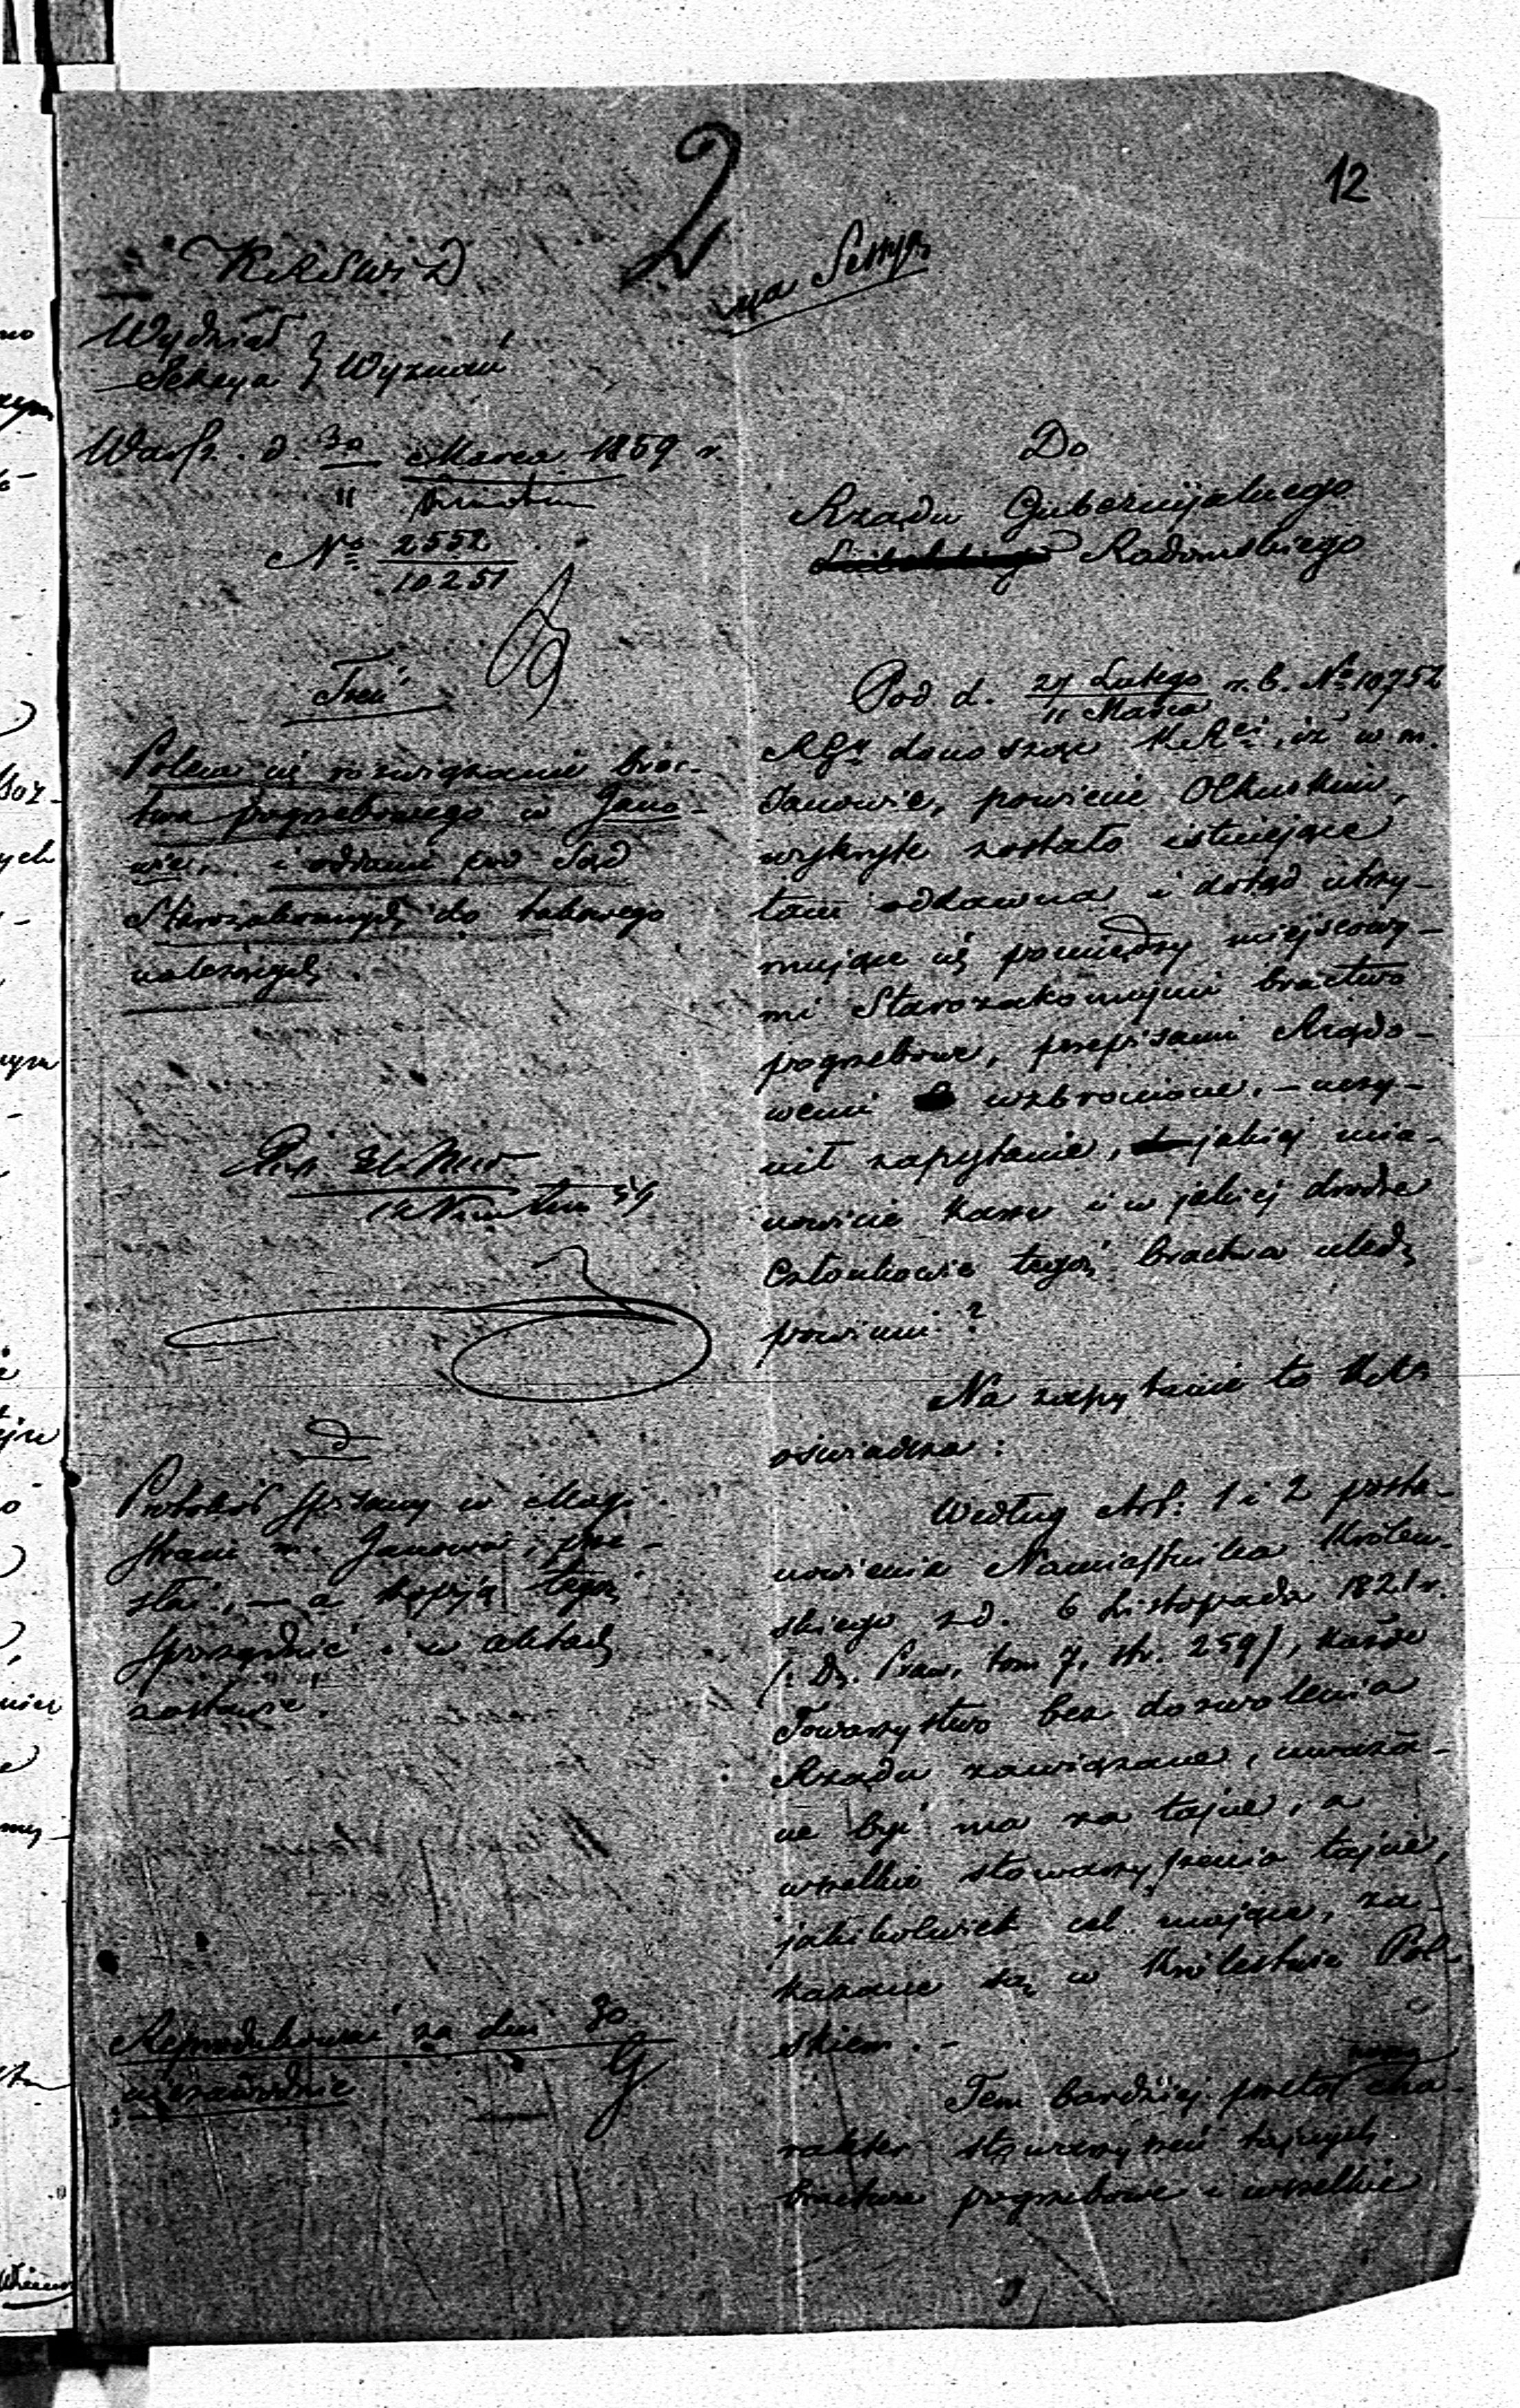 12
2
na Sessyę
K R S W i D
Wydział
Sekcya } Wyznań
Warsz. d. 30 Marca 1859 r.
11 Kwietnia
No 2552
10251
Treść
Poleca się rozwiązanie brac-
twa pogrzebowego w Jano-
wie i oddanie pod Sąd
Starozakonnych do takowego
należących.
12 Kwietnia 59
Protokół spisany w Magi-
stracie m. Janowa, prze-
słać, — a kopją tegoż
sporządzić i w aktach
zostawić.
Reprodukować za dni 30
niezawodnie
Do
Rządu Gubernijalnego
Radomskiego
Pod d. 27 Lutego r. b. No 10752
11 Marca
RGy donosząc KRci, iż w m.
Janowie, powiecie Olkuskim,
wykryte zostało istniejące
tam oddawna i dotąd utrzy-
mujące się pomiędzy miejscowy-
mi Starozakonnymi bractwo
pogrzebowe, przepisami Rządo-
wemi wzbronione, — uczy-
nił zapytanie, jakiej mia-
nowicie karze i w jakiej drodze
Członkowie tegoż bractwa uledz
powinni?
Na zapytanie to KRs
oświadcza:
Według Art: 1 i 2 posta-
nowienia Namiestnika Królew-
skiego z d. 6 Listopada 1821 r.
(: Dz. Praw, tom 7, str. 259), każde
Towarzystwo bez dozwolenia
Rządu zawiązane, uważa-
ne być ma za tajne, a
wszelkie stowarzyszenia tajne,
jakikolwiek cel mające, za-
kazane są w Królestwie Pol-
skiem. —
Tem bardziej przeto cha-
rakter stowarzyszeń tajnych
bractwa pogrzebowe i wszelkie